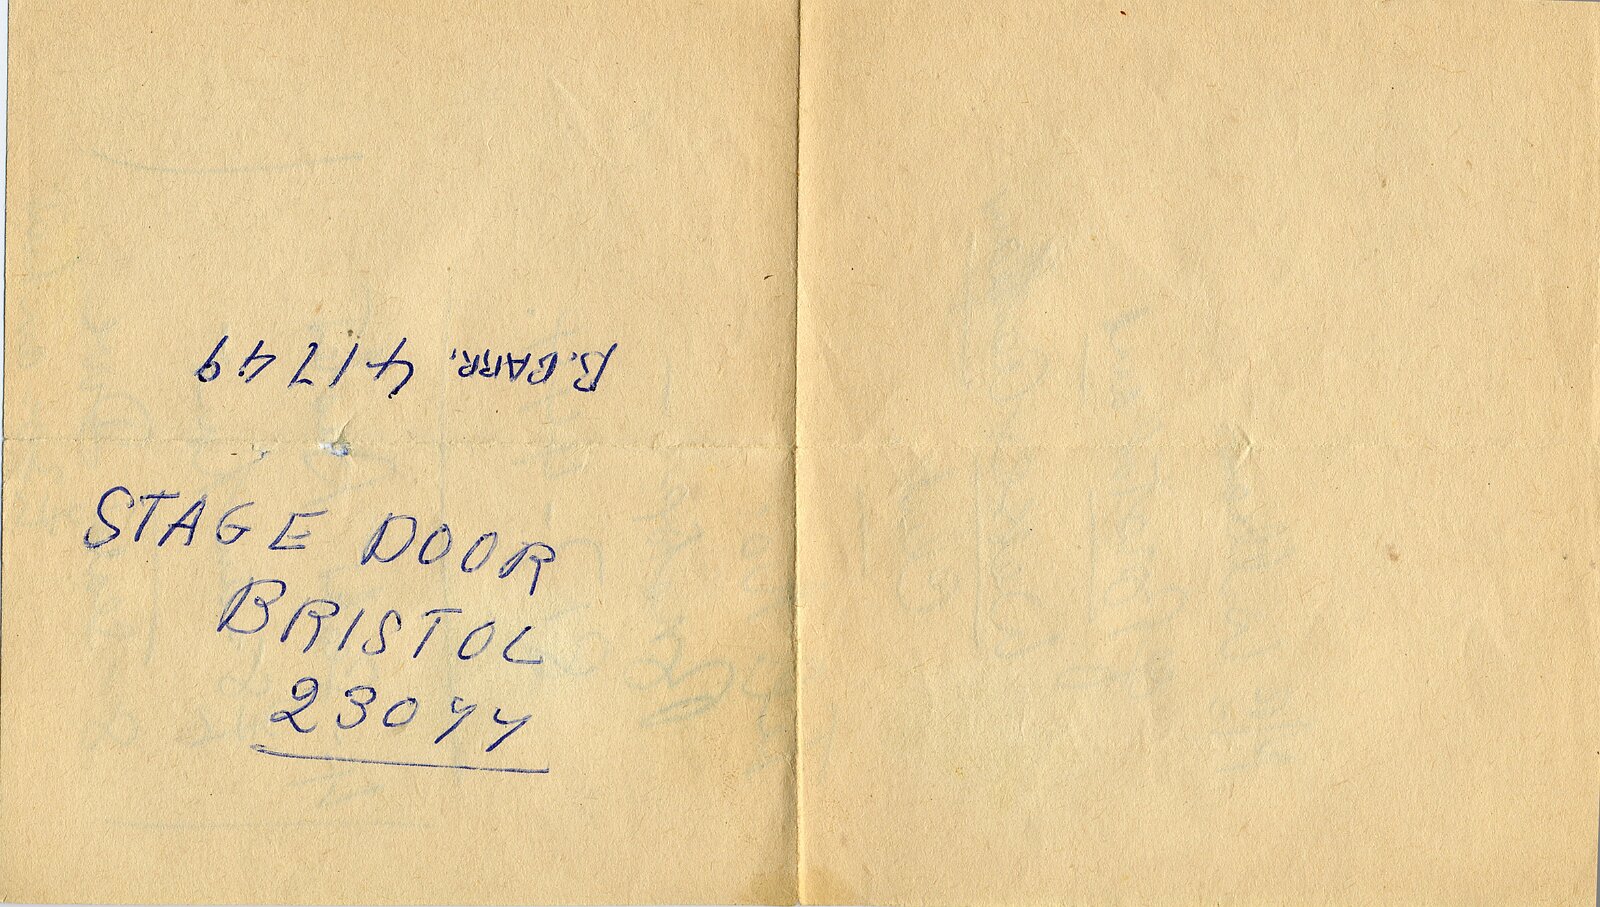 B. CARR. 41749
STAGE DOOR
BRISTOL
23044